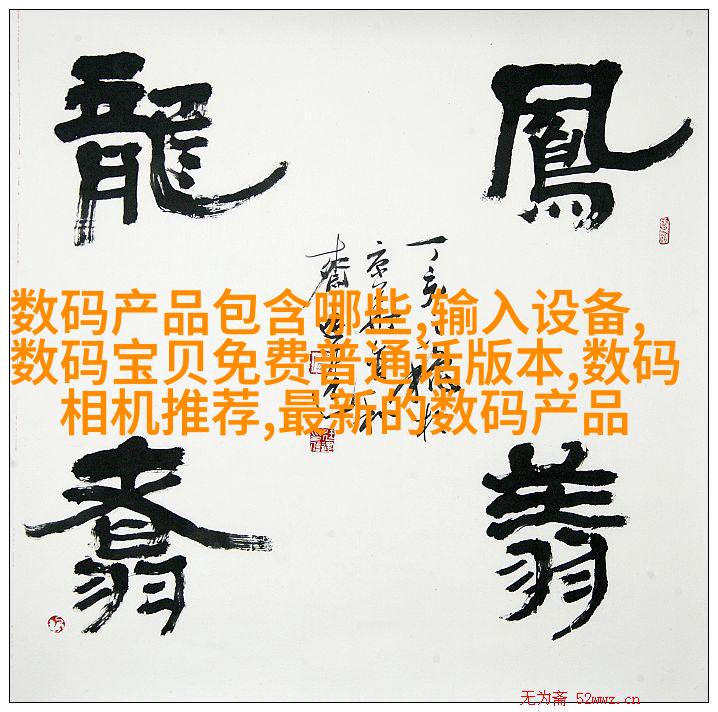 龍 鳳
丁亥
数码产品包含哪些,输入设备,
数码宝贝免费普通话版本,数码
相机推荐,最新的数码产品
翥 翔
无为斋 52wwz.cn